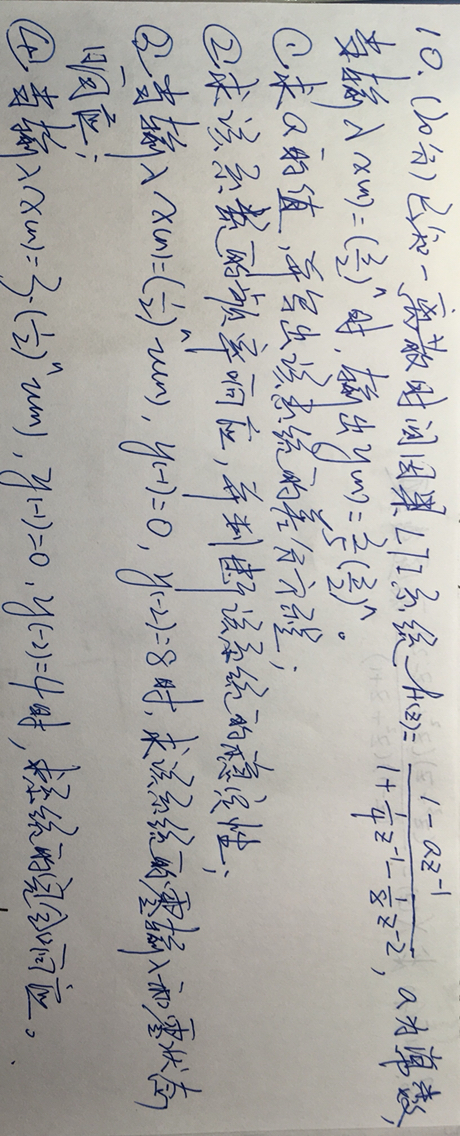 10. (20分) 已知一离散时间因果LTI系统 H(z)= \frac{1-az^{-1}}{1+\frac{1}{4}z^{-1}-\frac{1}{8}z^{-2}}, a为常数,
当输入x(n)=(\frac{3}{2})^n时, 输出y(n)=\frac{3}{5}(\frac{3}{2})^n。
①求a的值, 并写出该系统的差分方程;
②求该系统的频率响应, 并判断该系统的稳定性;
③当输入x(n)=(\frac{1}{2})^n u(n), y(-1)=0, y(-2)=8时, 求该系统的零输入和零状态
响应;
④当输入x(n)=3·(\frac{1}{2})^n u(n), y(-1)=0, y(-2)=4时, 求系统的完全响应。